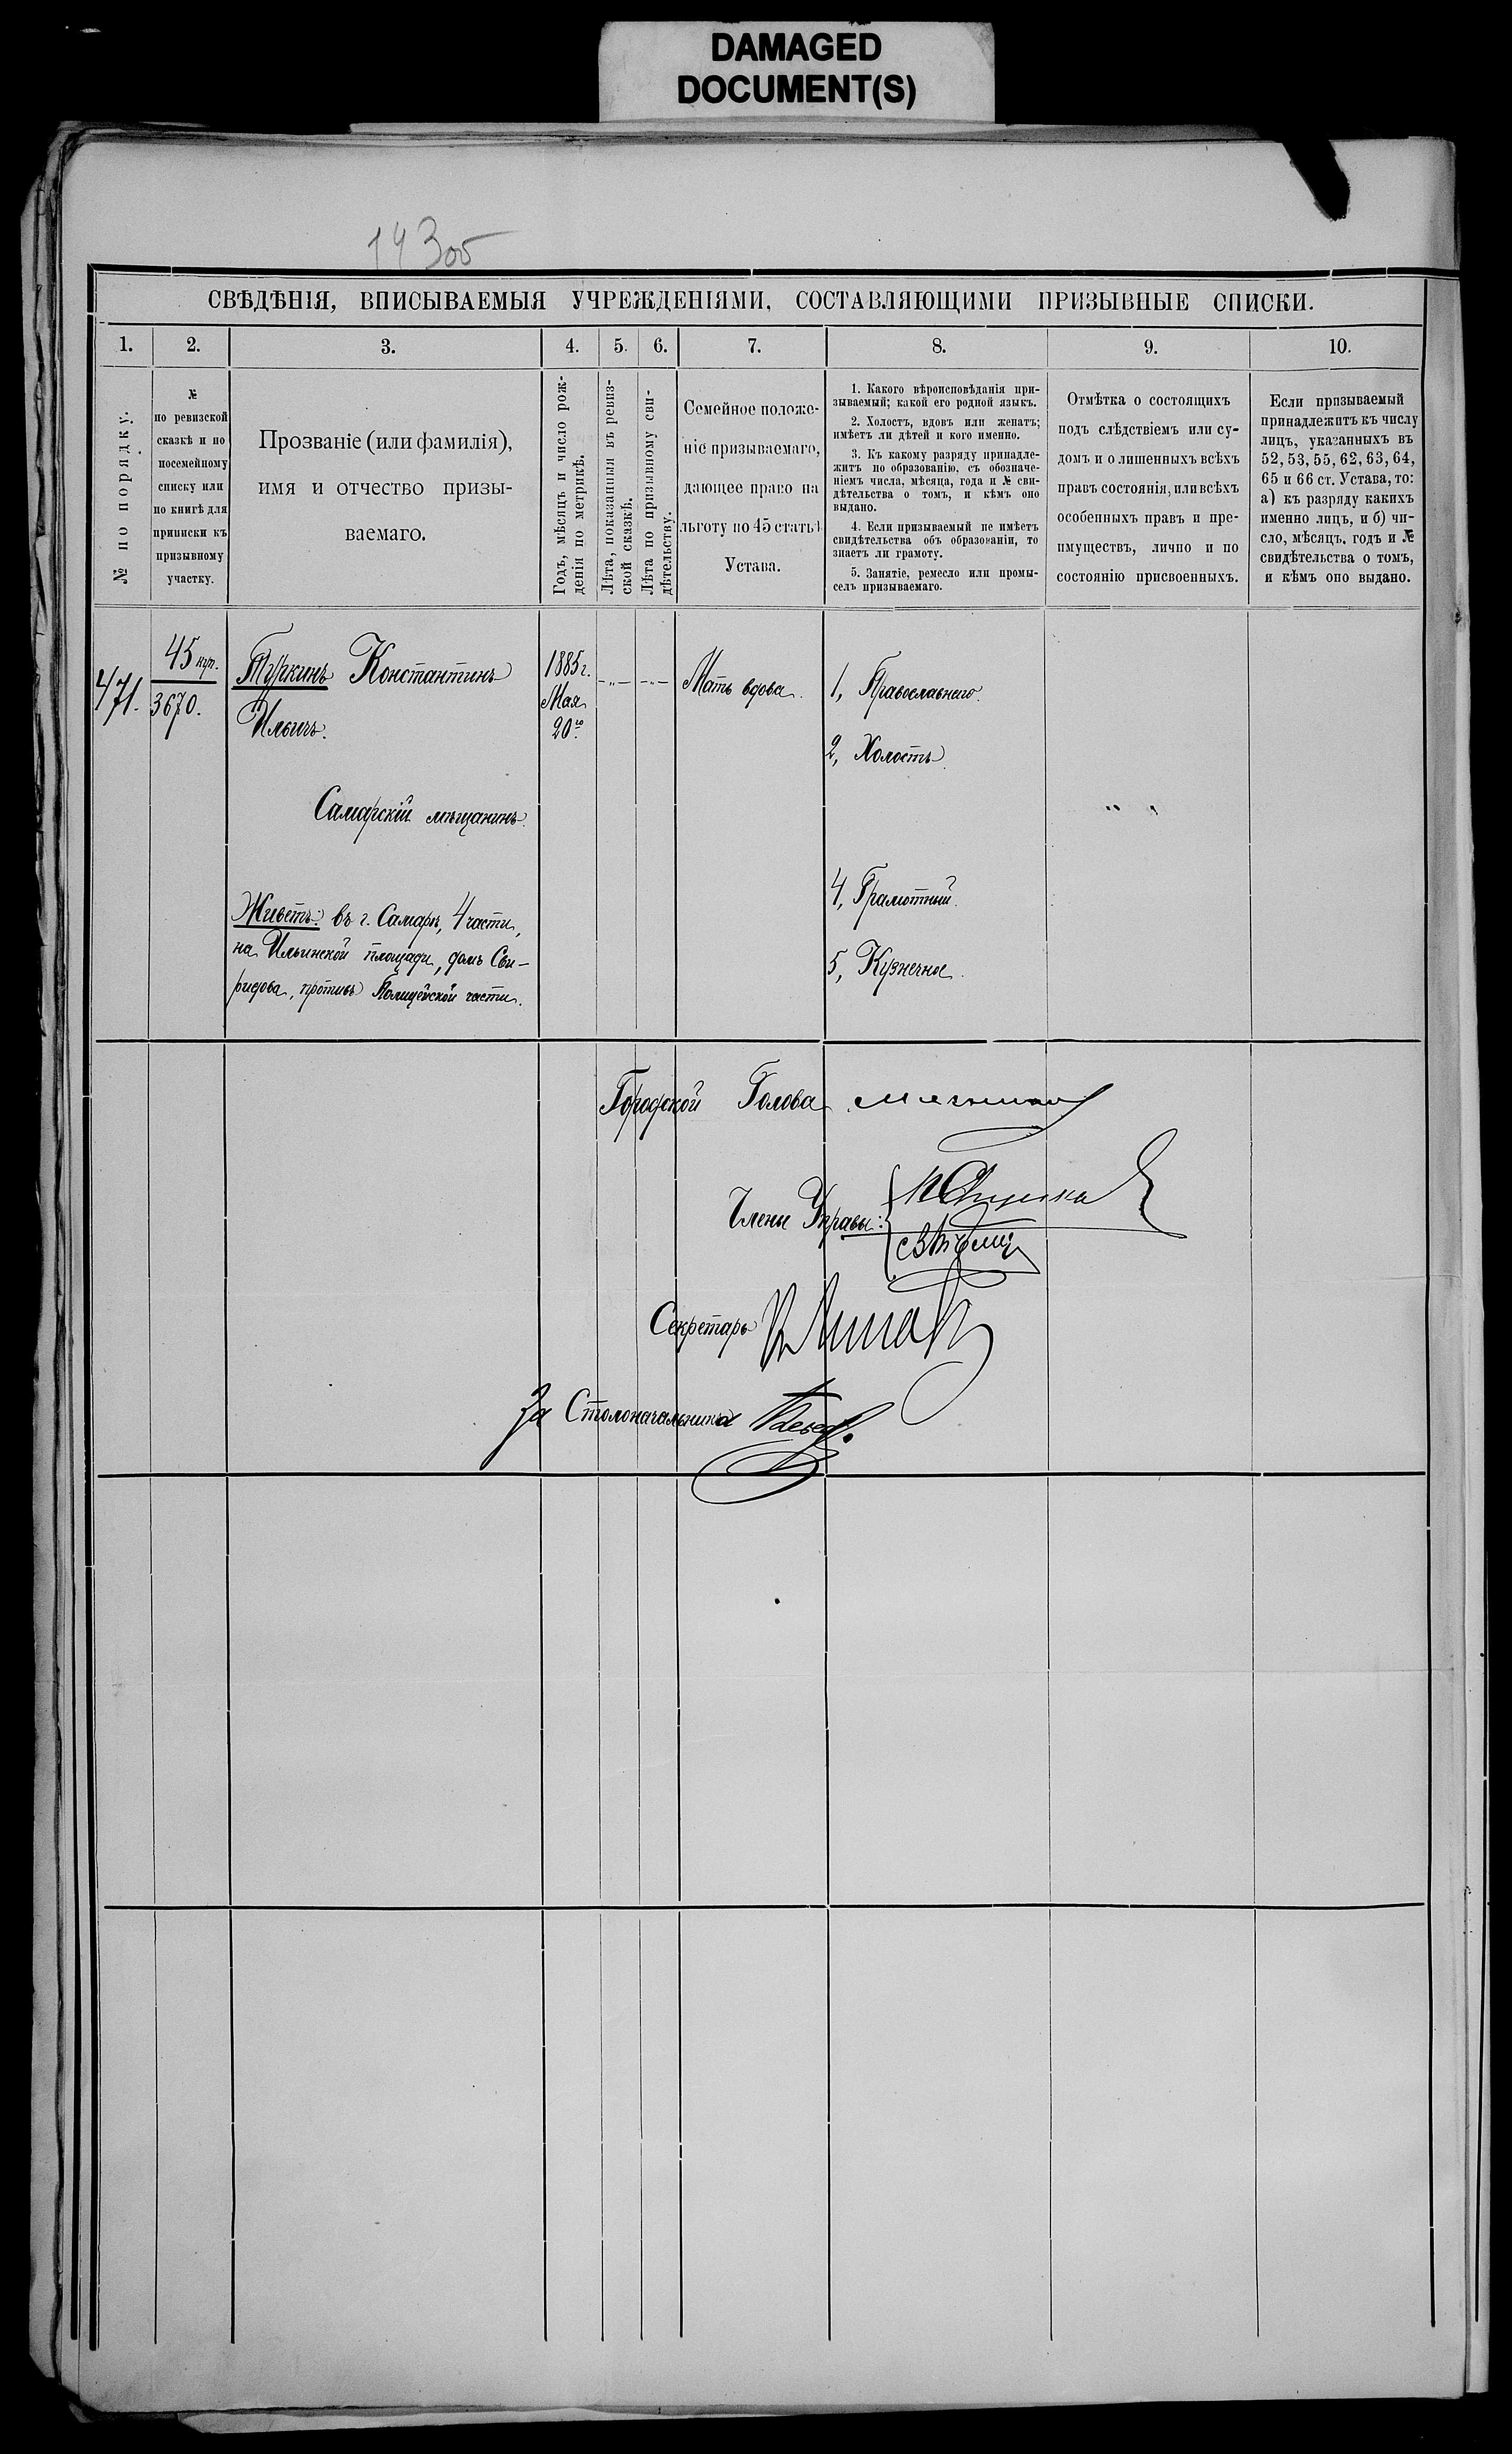 DAMAGED
DOCUMENT(S)
СВѢДѢНІЯ, ВПИСЫВАЕМЫЯ УЧРЕЖДЕНІЯМИ, СОСТАВЛЯЮЩИМИ ПРИЗЫВНЫЕ СПИСКИ.
1. 2. 3. 4. 5. 6. 7. 8. 9. 10.
№ по порядку.
№
по ревизской
сказкѣ и по
посемейному
списку или
по книгѣ для
приписки къ
призывному
участку.
Прозваніе (или фамилія),
имя и отчество призы-
ваемаго.
Годъ, мѣсяцъ и число рож-
денія по метрикѣ.
Лѣта, показанныя въ ревиз-
ской сказкѣ.
Лѣта по призывному сви-
дѣтельству.
Семейное положе-
ніе призываемаго,
дающее право на
льготу по 45 статьѣ
Устава.
1. Какого вѣроисповѣданія при-
зываемый; какой его родной языкъ.
2. Холостъ, вдовъ или женатъ;
имѣетъ ли дѣтей и кого именно.
3. Къ какому разряду принадле-
житъ по образованію, съ обозначе-
ніемъ числа, мѣсяца, года и № сви-
дѣтельства о томъ, и кѣмъ оно
выдано.
4. Если призываемый не имѣетъ
свидѣтельства объ образованіи, то
знаетъ ли грамоту.
5. Занятіе, ремесло или промы-
селъ призываемаго.
Отмѣтка о состоящихъ
подъ слѣдствіемъ или су-
домъ и о лишенныхъ всѣхъ
правъ состоянія, или всѣхъ
особенныхъ правъ и пре-
имуществъ, лично и по
состоянію присвоенныхъ.
Если призываемый
принадлежитъ къ числу
лицъ, указанныхъ въ
52, 53, 55, 62, 63, 64,
65 и 66 ст. Устава, то:
а) къ разряду какихъ
именно лицъ, и б) чи-
сло, мѣсяцъ, годъ и №
свидѣтельства о томъ,
и кѣмъ оно выдано.
471.
45 куп.
3670.
Туркинъ Константинъ
Ильичъ.
Самарскій мѣщанинъ.
Живетъ: въ г. Самарѣ, 4 части,
на Ильинской площади, домъ Сви-
ридова, противъ Полицейской части.
1885 г.
Мая
20го
-"-
-"-
Мать вдова.
1, Православнаго.
2, Холостъ
4, Грамотный.
5, Кузнечное.
Городской Голова
Члены Управы:
Секретарь
За Столоначальника